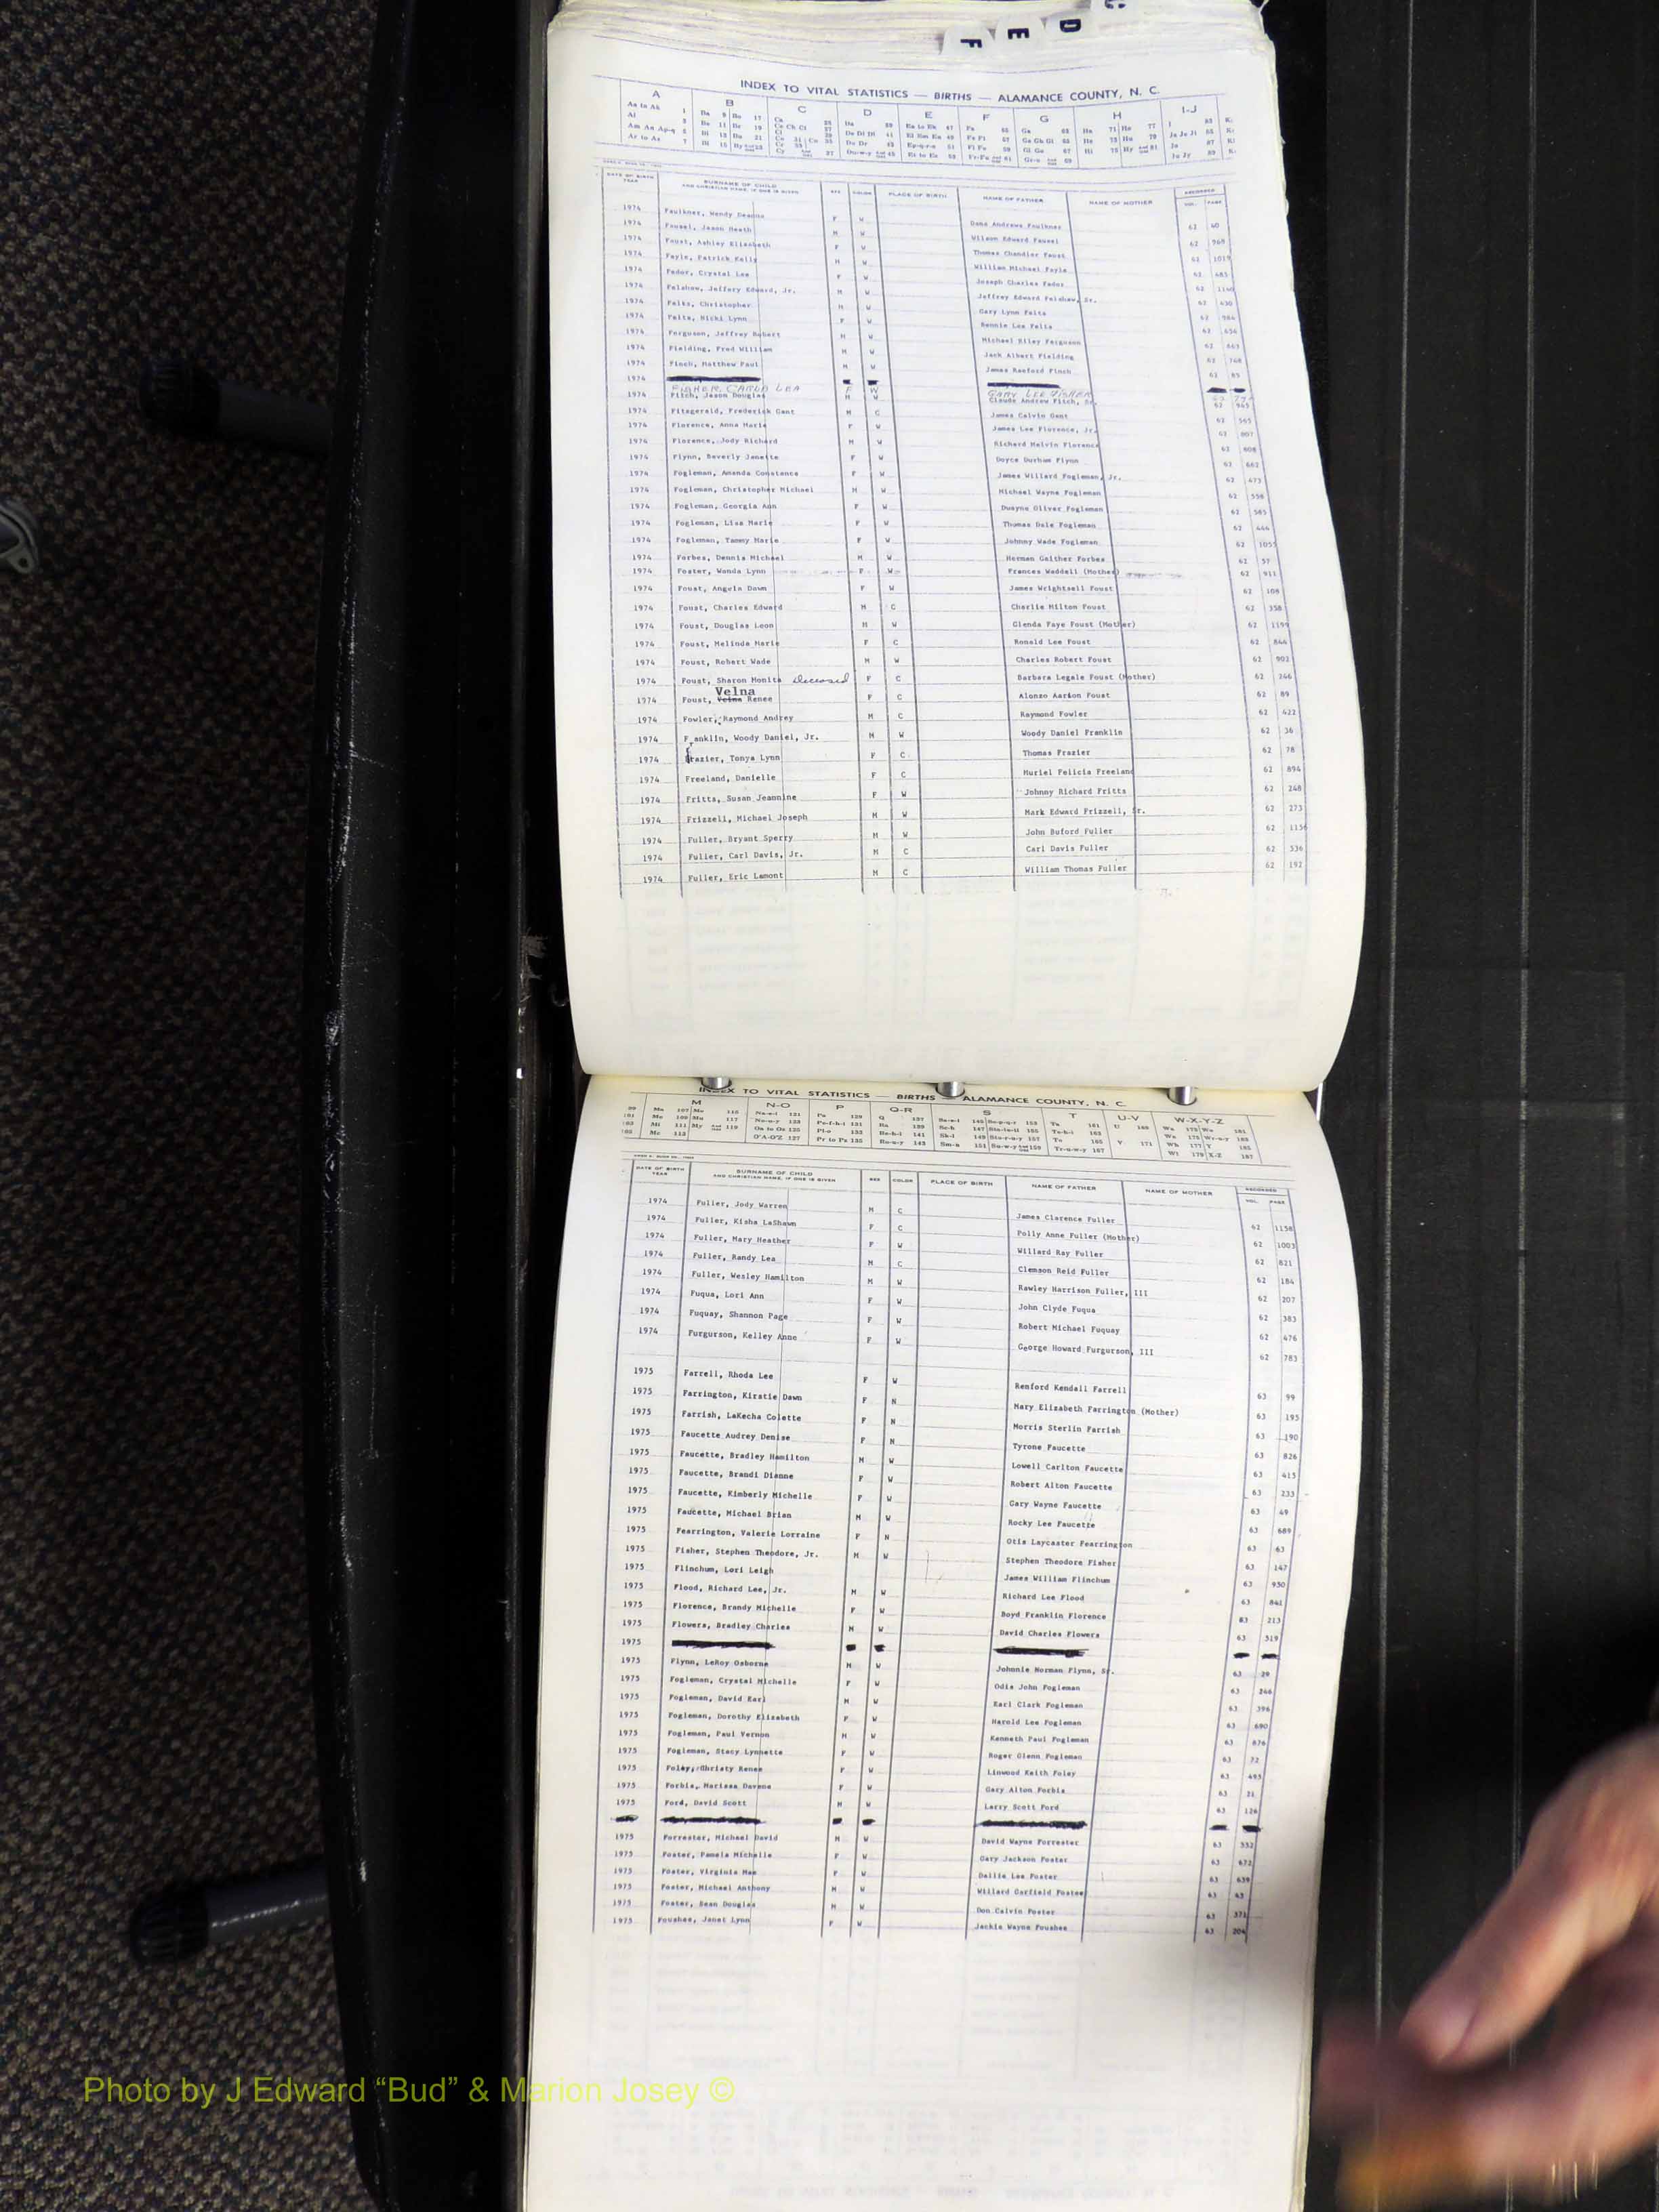 F E D C
INDEX TO VITAL STATISTICS — BIRTHS — ALAMANCE COUNTY, N. C.
A B C D E F G H I-J
DATE OF BIRTH YEAR SURNAME OF CHILD AND CHRISTIAN NAME, IF ONE IS GIVEN SEX COLOR PLACE OF BIRTH NAME OF FATHER NAME OF MOTHER RECORDED VOL. PAGE
1974 Faulkner, Wendy Deanna F W Dana Andrews Faulkner 62 40
1974 Fausel, Jason Heath M W Wilson Edward Fausel 62 968
1974 Faust, Ashley Elizabeth F W Thomas Chandler Faust 62 1019
1974 Fayle, Patrick Kelly M W William Michael Fayle 62 685
1974 Fedor, Crystal Lee F W Joseph Charles Fedor 62 1140
1974 Felshaw, Jeffery Edward, Jr. M W Jeffrey Edward Felshaw, Sr. 62 430
1974 Felts, Christopher M W Gary Lynn Felts 62 984
1974 Felts, Nicki Lynn F W Bennie Lee Felts 62 654
1974 Ferguson, Jeffrey Robert M W Michael Riley Ferguson 62 663
1974 Fielding, Fred William M W Jack Albert Fielding 62 748
1974 Finch, Matthew Paul M W James Raeford Finch 62 85
1974
FISHER, CARLA LEA F W GARY LEE FISHER
1974 Fitch, Jason Douglas M W Claude Andrew Fitch, Sr. 62 945
1974 Fitzgerald, Frederick Gant M C James Calvin Gant 62 565
1974 Florence, Anna Marie F W James Lee Florence, Jr. 62 807
1974 Florence, Jody Richard M W Richard Melvin Florence 62 608
1974 Flynn, Beverly Janette F W Doyce Durham Flynn 62 662
1974 Fogleman, Amanda Constance F W James Willard Fogleman, Jr. 62 473
1974 Fogleman, Christopher Michael M W Michael Wayne Fogleman 62 558
1974 Fogleman, Georgia Ann F W Duayne Oliver Fogleman 62 585
1974 Fogleman, Lisa Marie F W Thomas Dale Fogleman 62 444
1974 Fogleman, Tammy Marie F W Johnny Wade Fogleman 62 1055
1974 Forbes, Dennis Michael M W Herman Gaither Forbes 62 57
1974 Foster, Wanda Lynn F W Frances Waddell (Mother) 62 911
1974 Foust, Angela Dawn F W James Wrightsell Foust 62 108
1974 Foust, Charles Edward M C Charlie Milton Foust 62 358
1974 Foust, Douglas Leon M W Glenda Faye Foust (Mother) 62 1199
1974 Foust, Melinda Marie F C Ronald Lee Foust 62 844
1974 Foust, Robert Wade M W Charles Robert Foust 62 902
1974 Foust, Sharon Monita deceased F C Barbara Legale Foust (Mother) 62 246
Velna
1974 Foust, Renee F C Alonzo Aarion Foust 62 89
1974 Fowler, Raymond Andrey M C Raymond Fowler 62 422
1974 Franklin, Woody Daniel, Jr. M W Woody Daniel Franklin 62 36
1974 Frazier, Tonya Lynn F C Thomas Frazier 62 78
1974 Freeland, Danielle F C Muriel Felicia Freeland 62 894
1974 Fritts, Susan Jeannine F W Johnny Richard Fritts 62 248
1974 Frizzell, Michael Joseph M W Mark Edward Frizzell, Sr. 62 273
1974 Fuller, Bryant Sperry M W John Buford Fuller 62 1156
1974 Fuller, Carl Davis, Jr. M C Carl Davis Fuller 62 336
1974 Fuller, Eric Lamont M C William Thomas Fuller 62 192
INDEX TO VITAL STATISTICS — BIRTHS — ALAMANCE COUNTY, N. C.
M N-O P Q-R S T U-V W-X-Y-Z
DATE OF BIRTH YEAR SURNAME OF CHILD AND CHRISTIAN NAME, IF ONE IS GIVEN SEX COLOR PLACE OF BIRTH NAME OF FATHER NAME OF MOTHER RECORDED VOL. PAGE
1974 Fuller, Jody Warren M C James Clarence Fuller 62 1158
1974 Fuller, Kisha LaShawn F C Polly Anne Fuller (Mother) 62 1003
1974 Fuller, Mary Heather F W Willard Ray Fuller 62 821
1974 Fuller, Randy Lea M C Clemson Reid Fuller 62 184
1974 Fuller, Wesley Hamilton M W Rawley Harrison Fuller, III 62 207
1974 Fuqua, Lori Ann F W John Clyde Fuqua 62 383
1974 Fuquay, Shannon Page F W Robert Michael Fuquay 62 476
1974 Furgurson, Kelley Anne F W George Howard Furgurson, III 62 783
1975 Farrell, Rhoda Lee F W Renford Kendall Farrell 63 99
1975 Farrington, Kirstie Dawn F N Mary Elizabeth Farrington (Mother) 63 195
1975 Farrish, LaKecha Colette F N Morris Sterlin Farrish 63 190
1975 Faucette Audrey Denise F N Tyrone Faucette 63 826
1975 Faucette, Bradley Hamilton M W Lowell Carlton Faucette 63 415
1975 Faucette, Brandi Dianne F W Robert Alton Faucette 63 233
1975 Faucette, Kimberly Michelle F W Gary Wayne Faucette 63 49
1975 Faucette, Michael Brian M W Rocky Lee Faucette 63 689
1975 Fearrington, Valerie Lorraine F N Otis Laycaster Fearrington 63 63
1975 Fisher, Stephen Theodore, Jr. M W Stephen Theodore Fisher 63 147
1975 Flinchum, Lori Leigh James William Flinchum 63 930
1975 Flood, Richard Lee, Jr. M W Richard Lee Flood 63 841
1975 Florence, Brandy Michelle F W Boyd Franklin Florence 83 213
1975 Flowers, Bradley Charles M W David Charles Flowers 63 319
1975
1975 Flynn, LeRoy Osborne M W Johnnie Norman Flynn, Sr. 63 29
1975 Fogleman, Crystal Michelle F W Odis John Fogleman 63 246
1975 Fogleman, David Earl M W Earl Clark Fogleman 63 396
1975 Fogleman, Dorothy Elizabeth F W Harold Lee Fogleman 63 680
1975 Fogleman, Paul Vernon M W Kenneth Paul Fogleman 63 876
1975 Fogleman, Stacy Lynnette F W Roger Glenn Fogleman 63 72
1975 Foley, Christy Renee F W Linwood Keith Foley 63 495
1975 Forbis, Marissa Davena F W Gary Alton Forbis 63 21
1975 Ford, David Scott M W Larry Scott Ford 63 126
1975 Forrester, Michael David M W David Wayne Forrester 63 552
1975 Foster, Pamela Michelle F W Gary Jackson Foster 63 672
1975 Foster, Virginia Mae F W Dallie Lee Foster 63 639
1975 Foster, Michael Anthony M W Willard Garfield Foster 63 43
1975 Foster, Sean Douglas M W Don Calvin Foster 63 371
1975 Foushee, Janet Lynn F W Jackie Wayne Foushee 63 204
Photo by J Edward “Bud” & Marion Josey ©